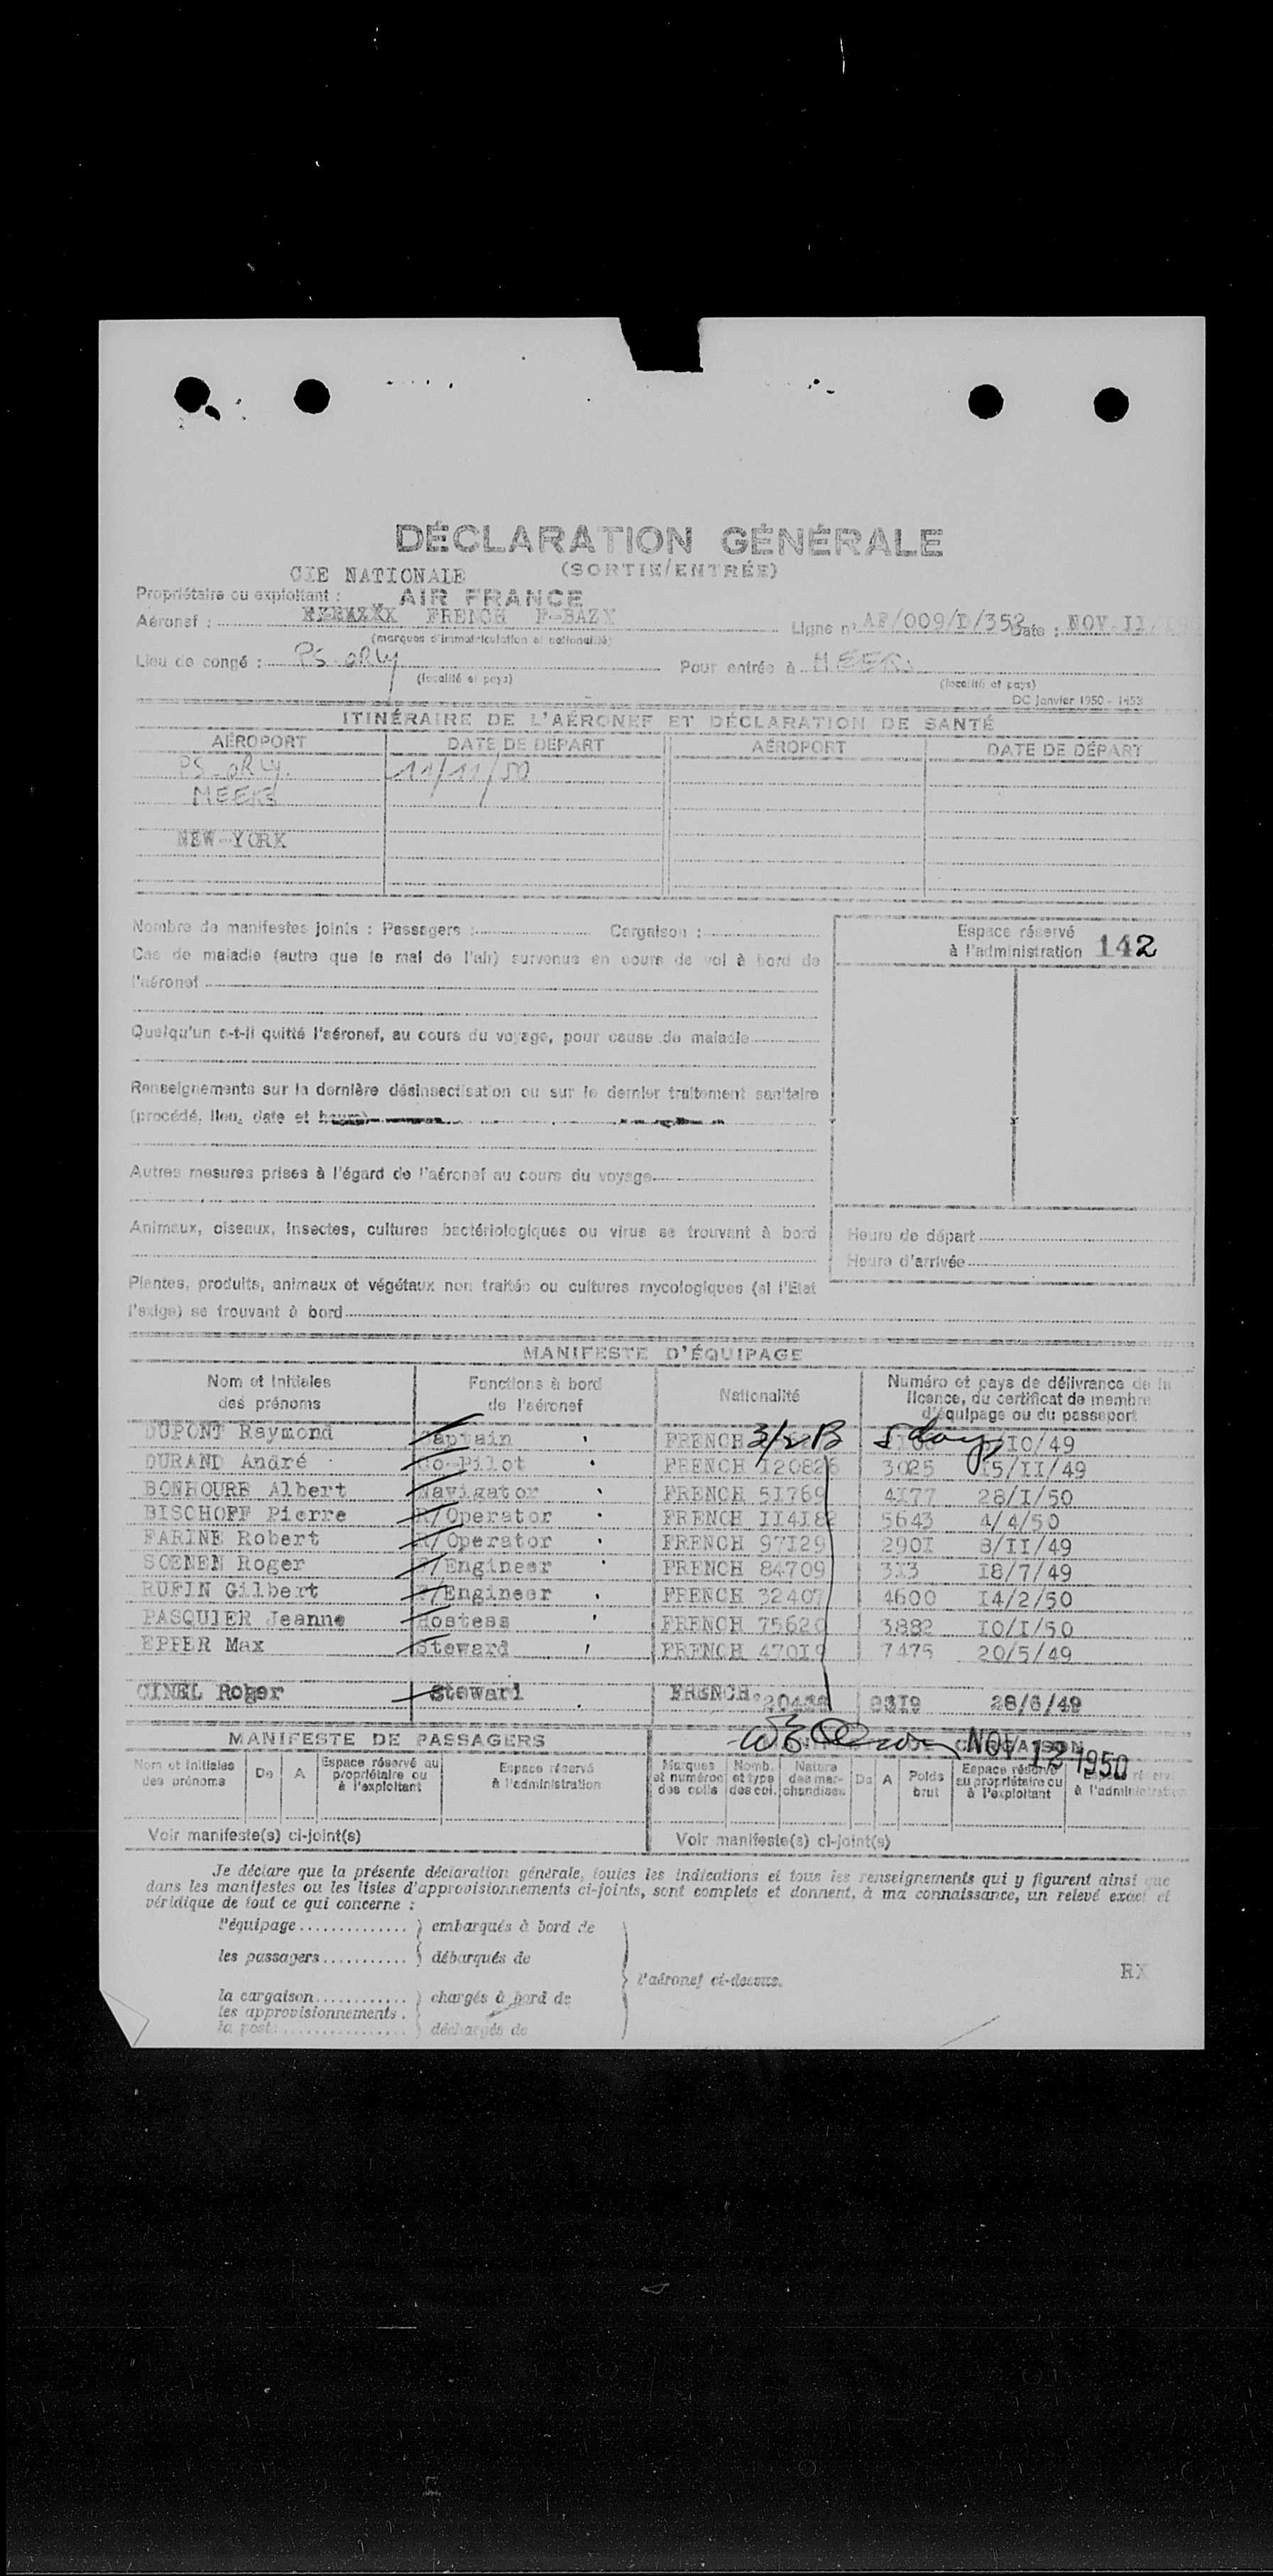 DÉCLARATION GÉNÉRALE
(SORTIE/ENTRÉE)
CIE NATIONALE
Propriétaire ou exploitant : AIR FRANCE
Aéronef : FRENCH F-BAZY
(marques d'immatriculation et nationalité)
Ligne n° AF/009/D/352 Date : NOV. II
Lieu de congé : PS-ORLY Pour entrée à MEEKS
(localité et pays) (localité et pays)
DC Janvier 1950 - 1453
ITINÉRAIRE DE L'AÉRONEF ET DÉCLARATION DE SANTÉ
AÉROPORT DATE DE DÉPART AÉROPORT DATE DE DÉPART
PS-ORLY. 11/11/50
MEEKS
NEW-YORK
Nombre de manifestes joints : Passagers : Cargaison :
Cas de maladie (autre que le mal de l'air) survenus en cours de vol à bord de
l'aéronef
Espace réservé
à l'administration 142
Quelqu'un a-t-il quitté l'aéronef, au cours du voyage, pour cause de maladie
Renseignements sur la dernière désinsectisation ou sur le dernier traitement sanitaire
(procédé, lieu, date et heure)
Autres mesures prises à l'égard de l'aéronef au cours du voyage
Animaux, oiseaux, insectes, cultures bactériologiques ou virus se trouvant à bord
Heure de départ
Heure d'arrivée
Plantes, produits, animaux et végétaux non traités ou cultures mycologiques (si l'Etat
l'exige) se trouvant à bord
MANIFESTE D'ÉQUIPAGE
Nom et initiales des prénoms
Fonctions à bord de l'aéronef
Nationalité
Numéro et pays de délivrance de la licence, du certificat de membre d'équipage ou du passeport
DUPONT Raymond Captain FRENCH 3/2 B 5 days IO/49
DURAND André Co-Pilot FRENCH I20826 3025 I5/II/49
BONHOURE Albert Navigator FRENCH 5I769 4I77 28/I/50
BISCHOFF Pierre R/Operator FRENCH II4I82 5643 4/4/50
FARINE Robert R/Operator FRENCH 97I29 290I 8/II/49
SOENEN Roger F/Engineer FRENCH 84709 3I3 I8/7/49
RUFIN Gilbert F/Engineer FRENCH 32407 4600 I4/2/50
PASQUIER Jeanne Hostess FRENCH 75620 3882 IO/I/50
EPPER Max Steward FRENCH 470I9 7475 20/5/49
CINEL Roger Steward FRENCH 28/6/49
MANIFESTE DE PASSAGERS CARGAISON
NOV 12 1950
Nom et initiales des prénoms
De A
Espace réservé au propriétaire ou à l'exploitant
Espace réservé à l'administration
Marques et numéros des colis
Nomb. et type des col.
Nature des marchandises
De A
Poids brut
Espace réservé au propriétaire ou à l'exploitant
à l'administration
Voir manifeste(s) ci-joint(s) Voir manifeste(s) ci-joint(s)
Je déclare que la présente déclaration générale, toutes les indications et tous les renseignements qui y figurent ainsi que
dans les manifestes ou les listes d'approvisionnements ci-joints, sont complets et donnent, à ma connaissance, un relevé exact et
véridique de tout ce qui concerne :
l'équipage } embarqués à bord de
les passagers } débarqués de
l'aéronef ci-dessus.
RX
la cargaison } chargés à bord de
les approvisionnements
la poste } déchargés de